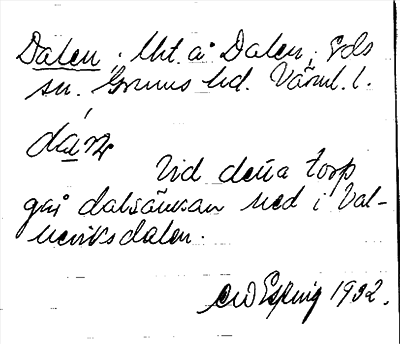 Dalen, lht. å Dalen, Eds
sn. Grums hd. Värml. l.
dan
Vid detta torp
gå dalsänkan ned i Val-
neviksdalen.
1932.